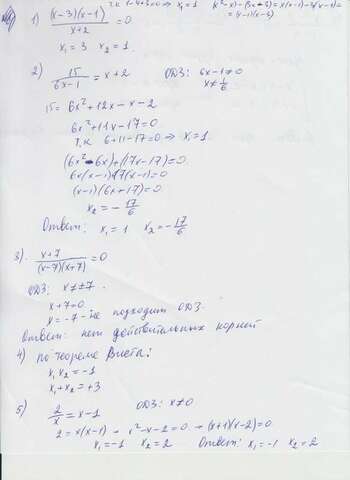 т.к. 1-4+3=0 ⇒ x₁=1 (x²-x)-(3x-3)=x(x-1)-3(x-1)=
=(x-1)(x-3)
1) (x-3)(x-1)/(x+2) =0
x₁=3 x₂=1.
2) 15/(6x-1) = x+2 ОДЗ: 6x-1≠0
x≠1/6
15=6x²+12x-x-2
6x²+11x-17=0
т.к 6+11-17=0 ⇒ x₁=1.
(6x²-6x)+(17x-17)=0
6x(x-1)+17(x-1)=0
(x-1)(6x+17)=0
x₂=-17/6
Ответ: x₁=1 x₂=-17/6
3). (x+7)/((x-7)(x+7)) =0
ОДЗ: x≠±7.
x+7=0
x=-7 - не подходит ОДЗ.
Ответ: нет действительных корней
4) по теореме Виета:
x₁x₂=-1
x₁+x₂=+3
5) 2/x = x-1 ОДЗ: x≠0
2=x(x-1) → x²-x-2=0 → (x+1)(x-2)=0
x₁=-1 x₂=2 Ответ: x₁=-1 x₂=2